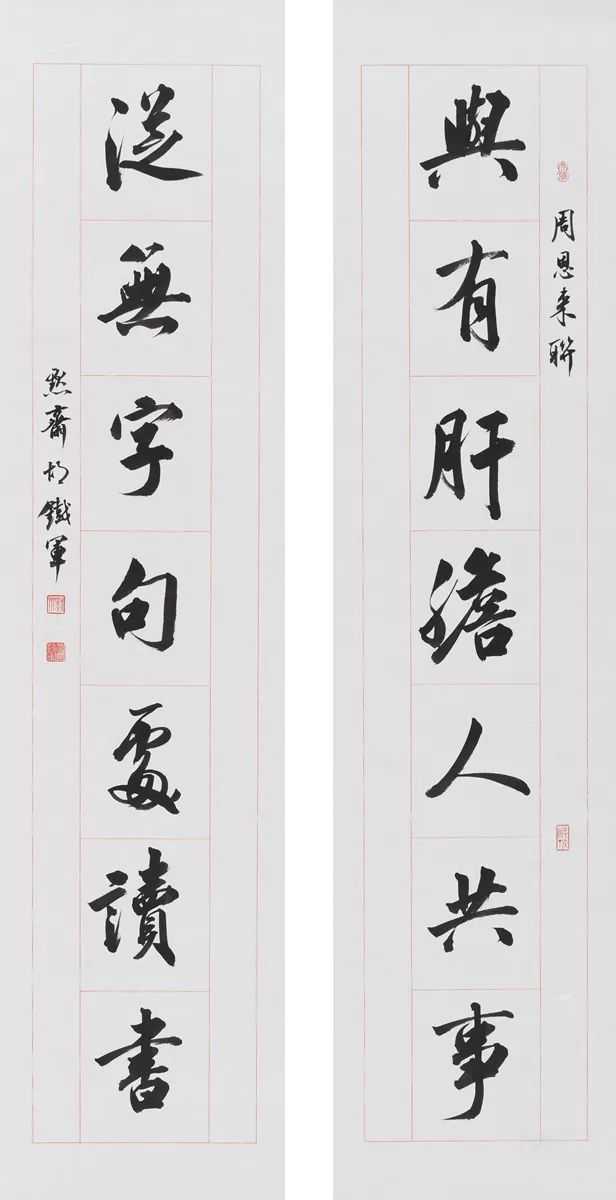 周恩来聯
與有肝膽人共事
從無字句處讀書
默齋胡鐵軍